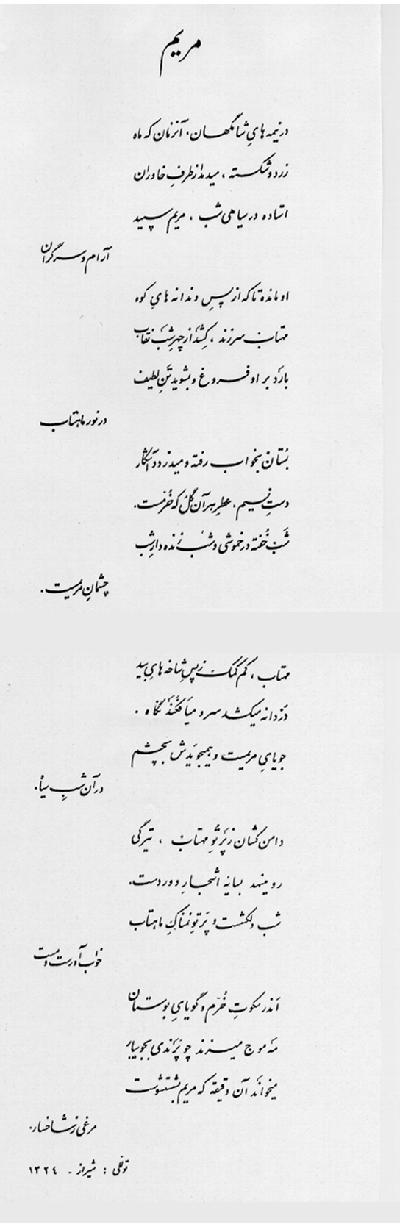 مریم
در نیمه های شامگهان، آنزمان که ماه
زرد و شکسته، میدمد از طرف خاوران
استاده در سیاهی شب، مریم سپید
آرام و سرگران
او مانده تا که از پس دندانه های کوه
مهتاب سرزند، کشد از چهر شب نقاب
بارد بر او فروغ و بشوید تن لطیف
در نور ماهتاب
بستان بخواب رفته و میدزدد آشکار
دست نسیم، عطر هر آن گل که خرمست.
شب خفته در خموشی و شب زنده دار شب
چشمان مریمست.
مهتاب، کم کمک ز پس شاخه های بید
دزدانه میکشد سر و میافکند نگاه.
جویای مریمست و همیجویدش بچشم
در آن شب سیاه.
دامن کشان ز پرتو مهتاب، تیرگی
رو مینهد بسایه اشجار دوردست.
شب دلکشست و پرتو نمناک ماهتاب
خواب آورست و مست
اندر سکوت خرم و گویای بوستان
مه موج میزند چو پرندی بجویبار
میخواند آن دقیقه که مریم بشستشوست
مرغی ز شاخسار.
توللی : شیراز - ۱۳۲۴